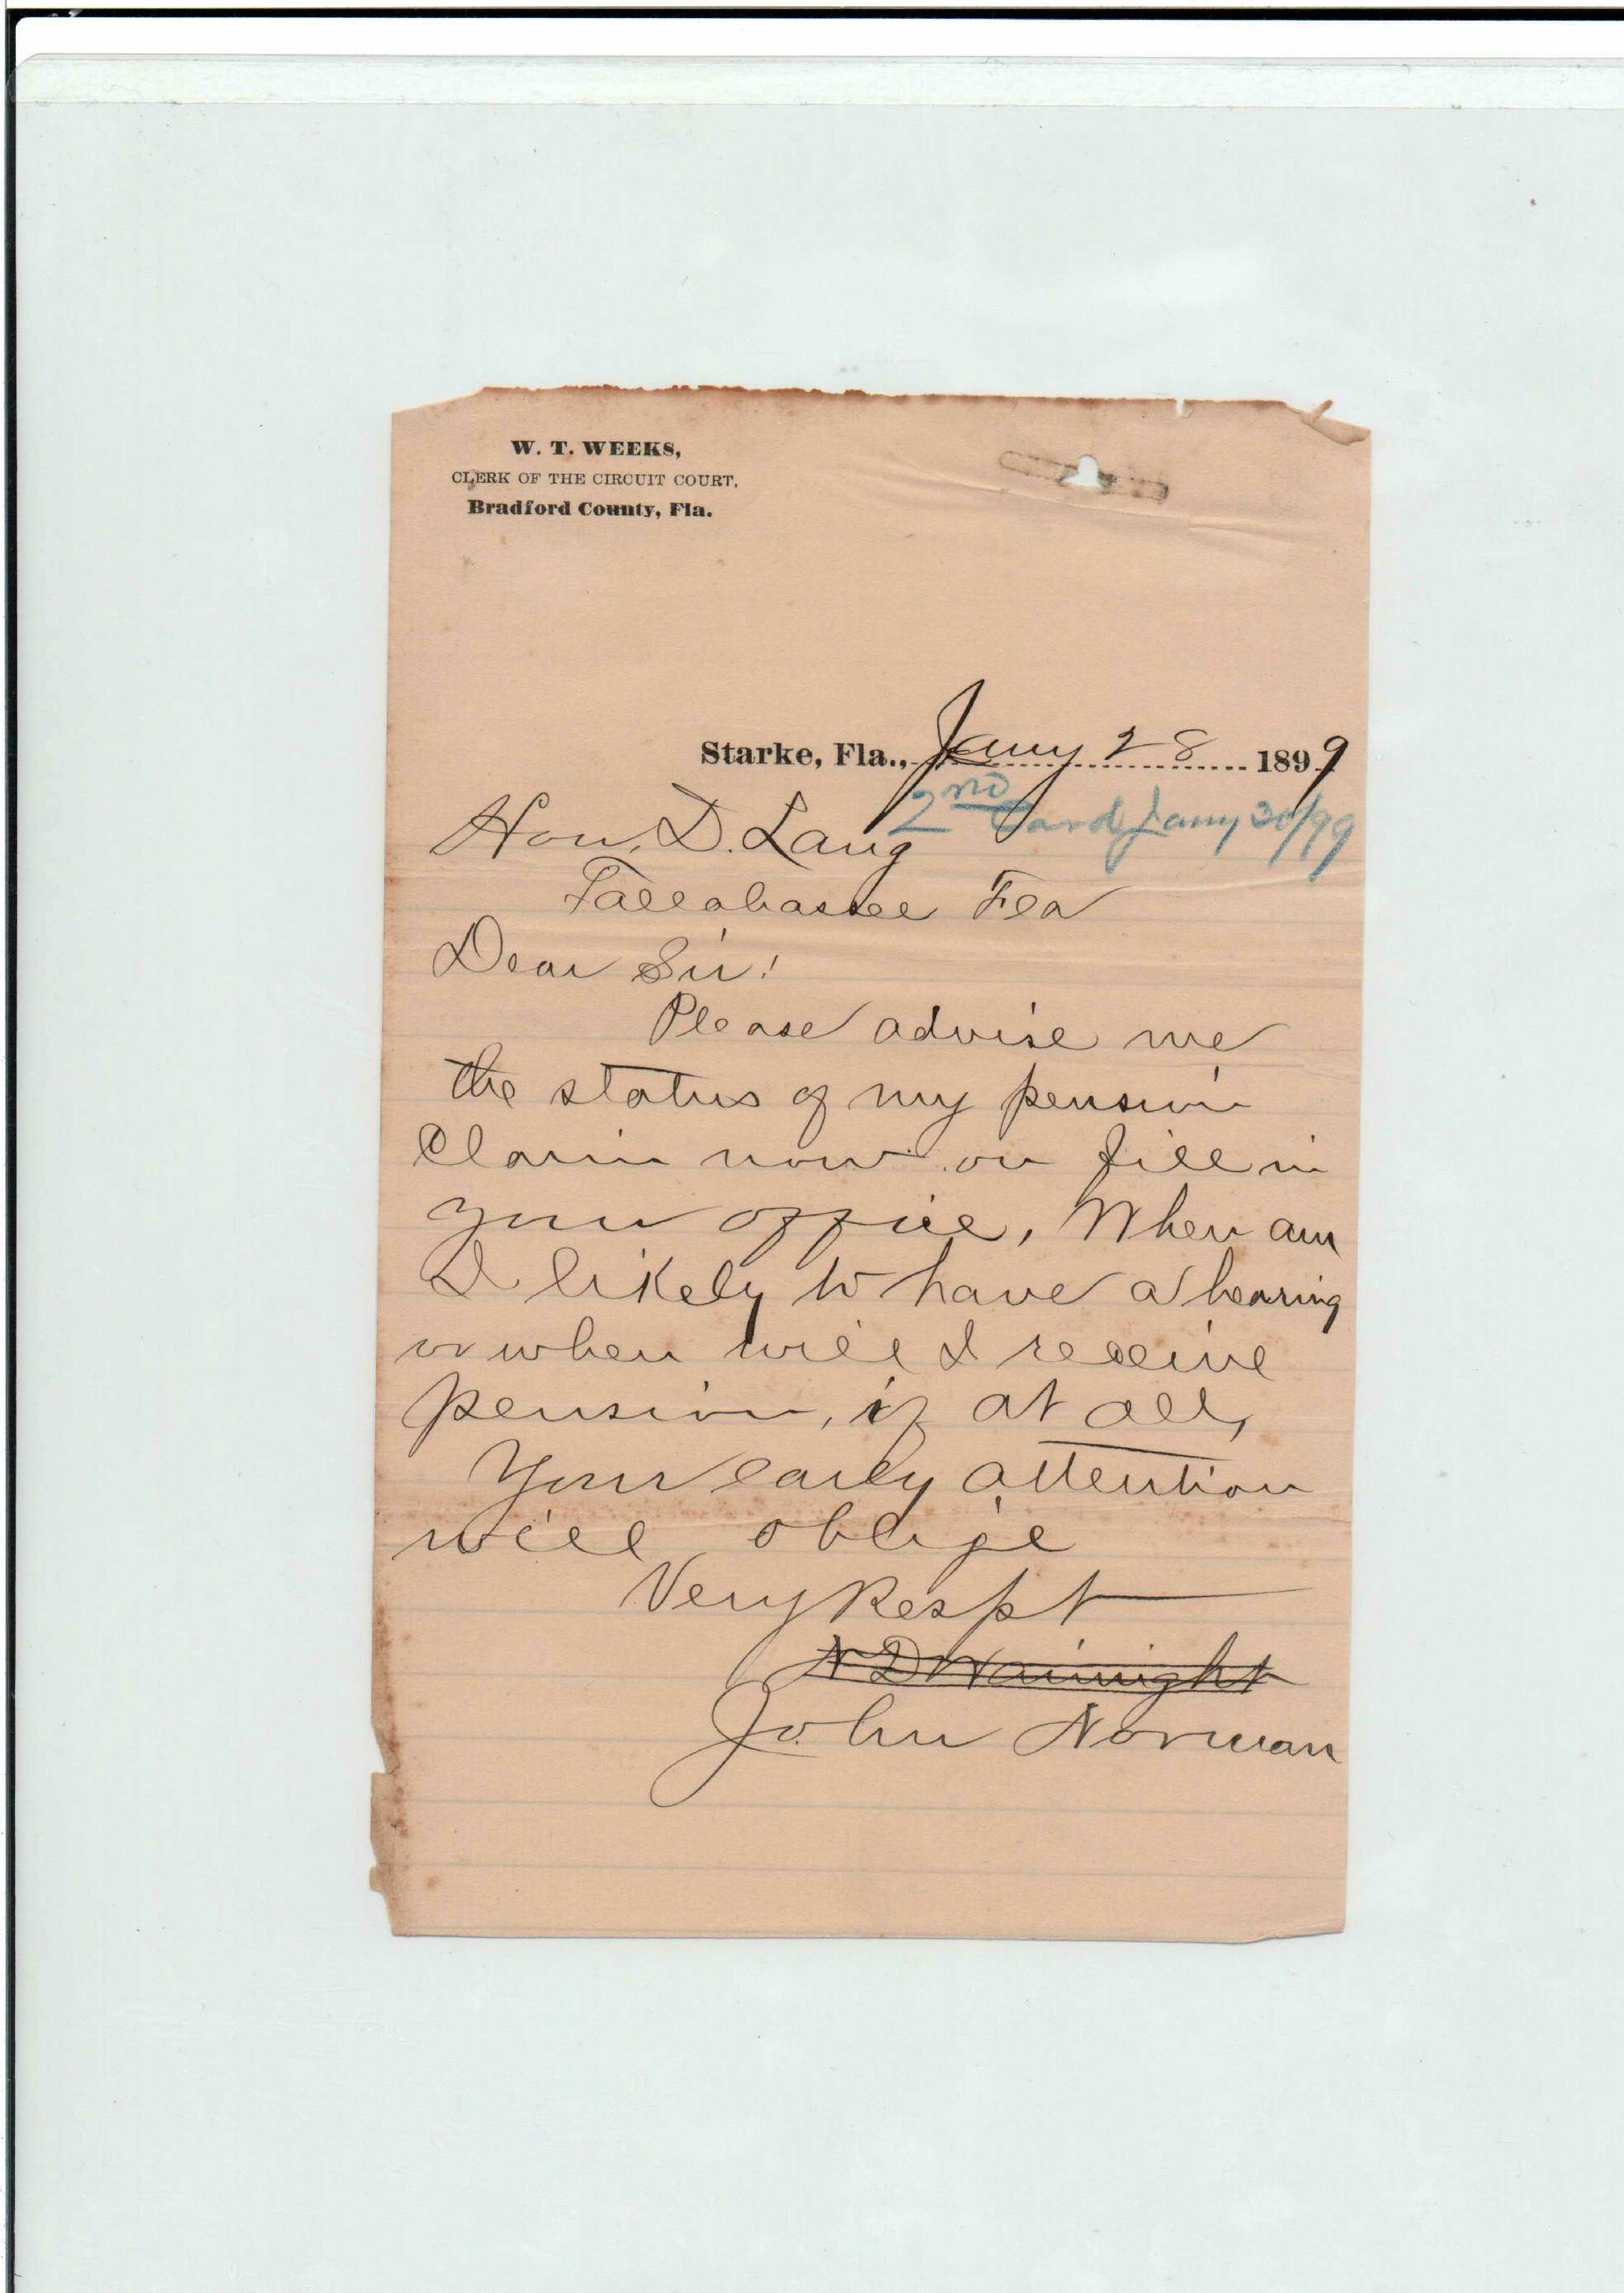 W. T. WEEKS,
CLERK OF THE CIRCUIT COURT,
Bradford County, Fla.
Starke, Fla., Jany 28 1899
2nd Card Jany 30/99
Hon. D. Lang
Tallahassee Fla
Dear Sir!
Please advise me
the status of my pension
Claim now on fill in
your office, When am
I likely to have a hearing
or when will I receive
pension, if at all,
Your early attention
will oblige
Very Respt
N D Wainright
John Norman